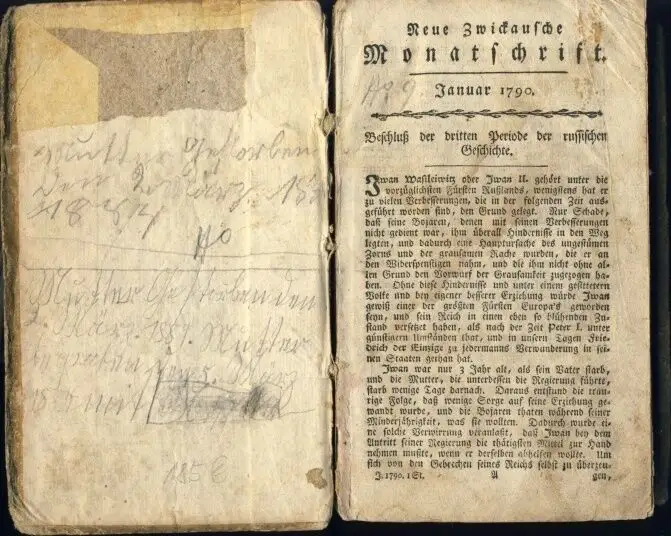 Mutter Gestorben
den
18
No
Mutter Gestorben den
Mutter
185
Neue Zwickausche
Monatschrift.
No 9.
Januar 1790.
Beschluß der dritten Periode der russischen
Geschichte.
Iwan Wasileiwitz oder Iwan II. gehört unter die
vorzüglichsten Fürsten Rußlands, wenigstens hat er
zu vielen Verbesserungen, die in der folgenden Zeit aus-
geführt worden sind, den Grund gelegt. Nur Schade,
daß seine Bojaren, denen mit seinen Verbesserungen
nicht gedient war, ihm überall Hindernisse in den Weg
legten, und dadurch eine Hauptursache des ungestümen
Zorns und der grausamen Rache wurden, die er an
den Widerspenstigen nahm, und die ihm nicht ohne al-
len Grund den Vorwurf der Grausamkeit zugezogen ha-
ben. Ohne diese Hindernisse und unter einem gesittetern
Volke und bey eigener besserer Erziehung würde Iwan
gewiß einer der größten Fürsten Europa's geworden
seyn, und sein Reich in einen eben so blühenden Zu-
stand versetzet haben, als nach der Zeit Peter I. unter
günstigern Umständen that, und in unsern Tagen Frie-
drich der Einzige zu jedermanns Verwunderung in sei-
nen Staaten gethan hat.
Iwan war nur 3 Jahr alt, als sein Vater starb,
und die Mutter, die unterdessen die Regierung führte,
starb wenige Tage darnach. Daraus entstund die trau-
rige Folge, daß wenige Sorge auf seine Erziehung ge-
wandt wurde, und die Bojaren thaten während seiner
Minderjährigkeit, was sie wollten. Dadurch wurde ei-
ne solche Verwirrung veranlaßt, daß Iwan bey dem
Antritt seiner Regierung die thätigsten Mittel zur Hand
nehmen mußte, wenn er derselben abhelfen wollte. Um
sich von den Gebrechen seines Reichs selbst zu überzeu-
J. 1790. 1 St. A gen,